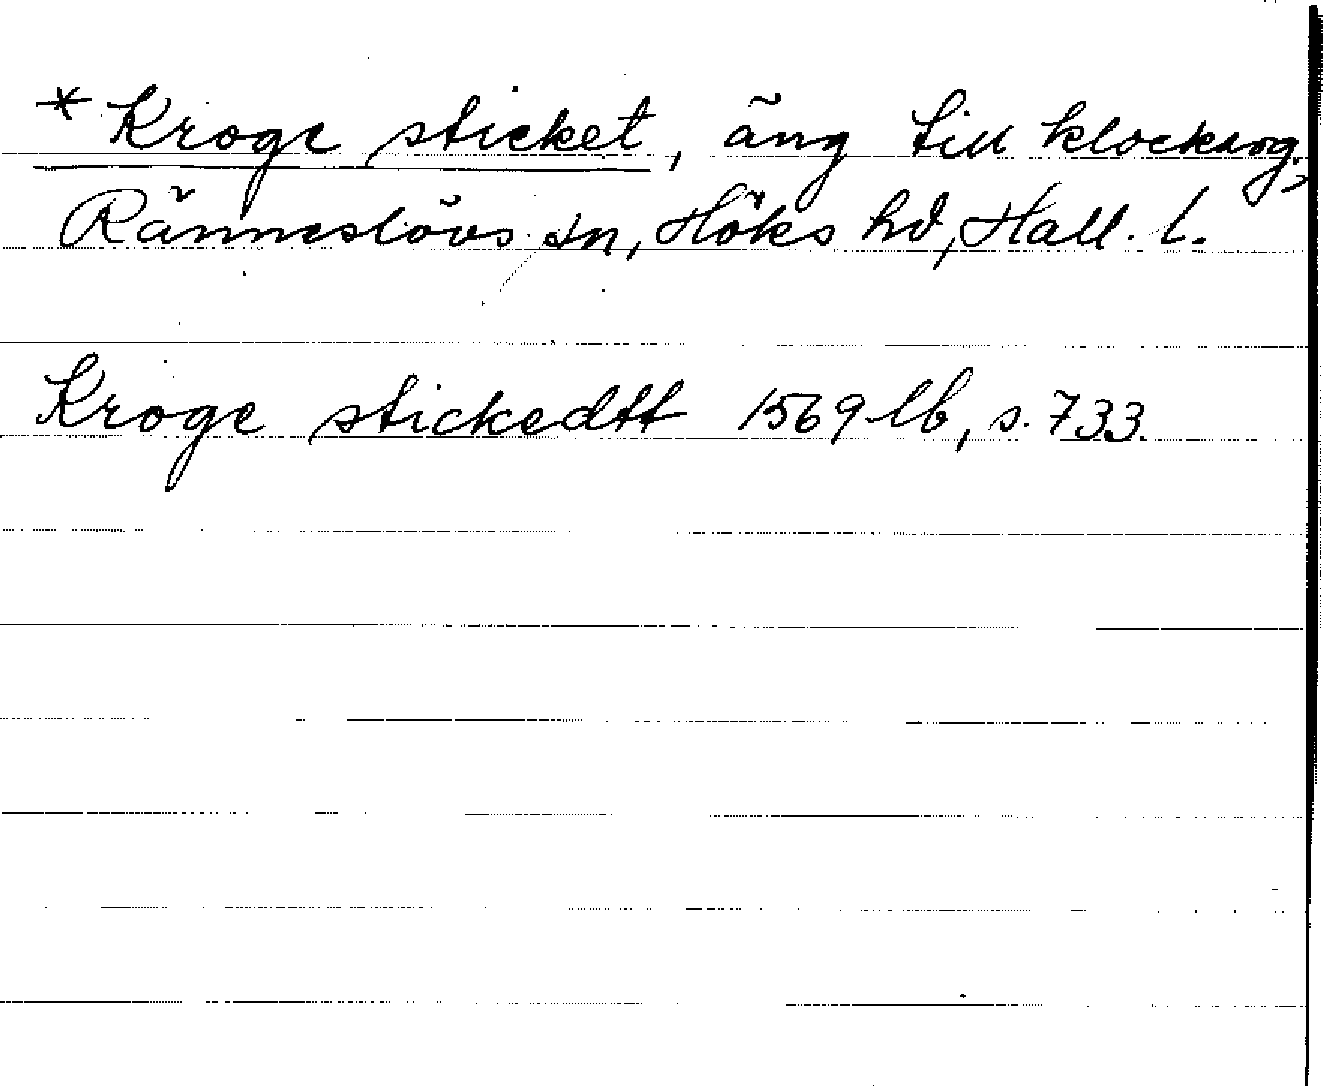 * Kroge sticket, äng till klockrog.,
Ränneslövs sn, Höks hd, Hall. l.
Kroge stickedtt 1569 lb, s. 733.